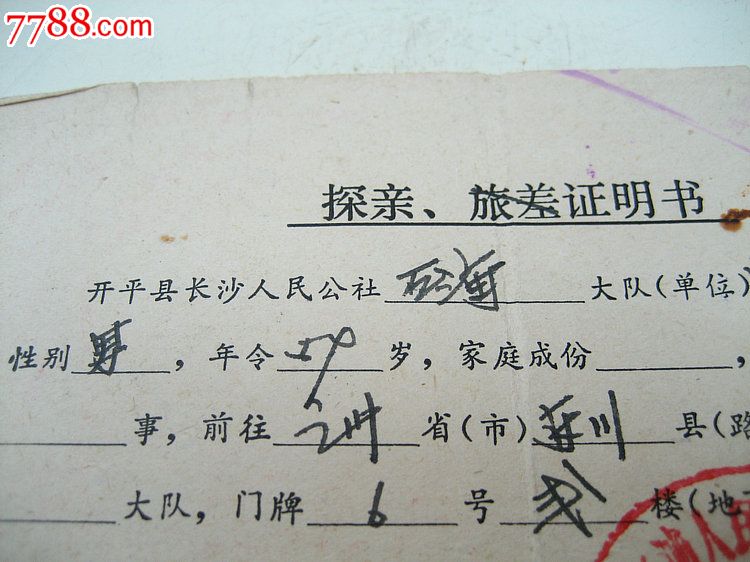 7788.com
探亲、旅差证明书
开平县长沙人民公社 大队(单位)
性别男, 年令59岁, 家庭成份,
事, 前往广州省(市) 川县(路
大队, 门牌6号 楼(地
人民